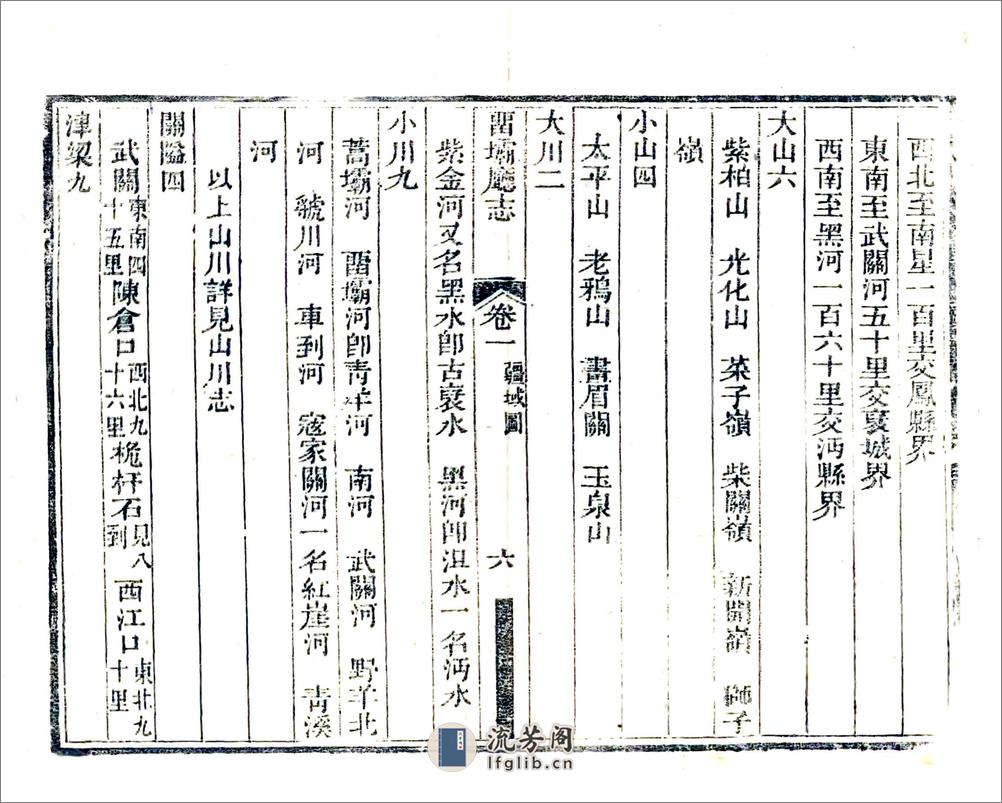 西北至南星一百里交鳳縣界
東南至武關河五十里交襃城界
西南至黑河一百六十里交沔縣界
大山六
紫柏山 光化山 菜子嶺 柴關嶺 新開嶺 獅子
嶺
小山四
太平山 老鴉山 畫眉關 玉泉山
大川二
畱壩廳志 卷一 疆域圖 六
紫金河又名黑水卽古襃水 黑河卽沮水一名沔水
小川九
蒿壩河 畱壩河卽青羊河 南河 武關河 野羊北
河 虢川河 車到河 寇家關河一名紅崖河 青溪
河
以上山川詳見山川志
關隘四
武關東南四十五里陳倉口西北九十六里桅杆石見八到西江口東北九十里
津梁九
流芳阁
lfglib.cn